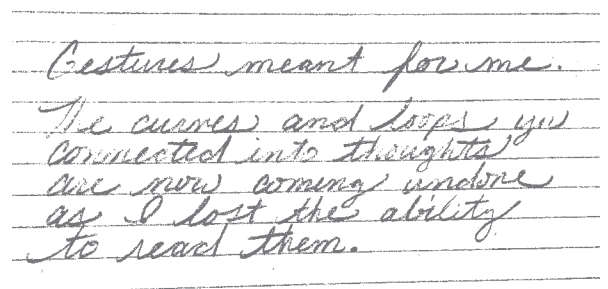 Gestures meant for me.
The curves and loops you
connected into thoughts
are now coming undone
as I lost the ability
to read them.